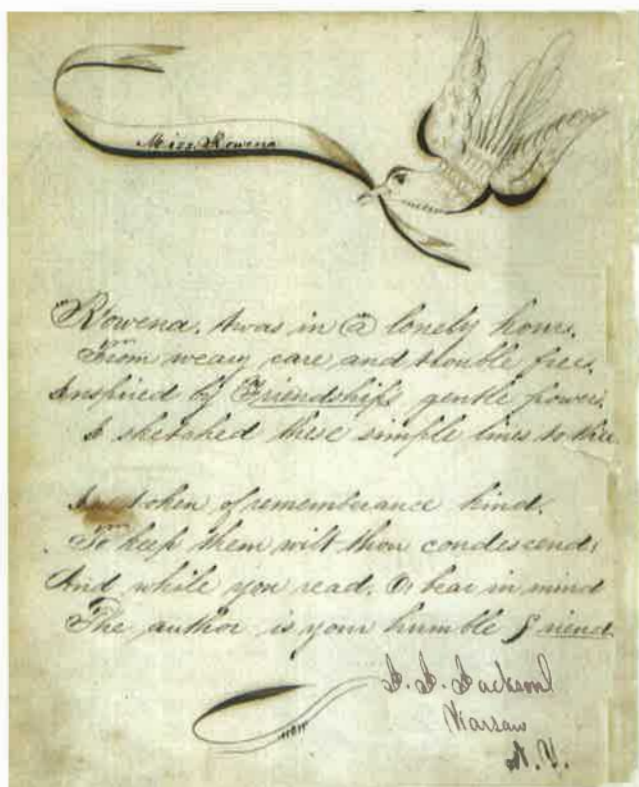 Miss Rowena
Rowena, twas in a lonely hour,
From weary care and trouble free,
Inspired by Friendships gentle power,
I sketched these simple lines to thee
In token of rememberance kind.
To keep them wilt thou condescend;
And while you read, O bear in mind
The author is your humble friend.
Jackson
Warsaw
N.Y.